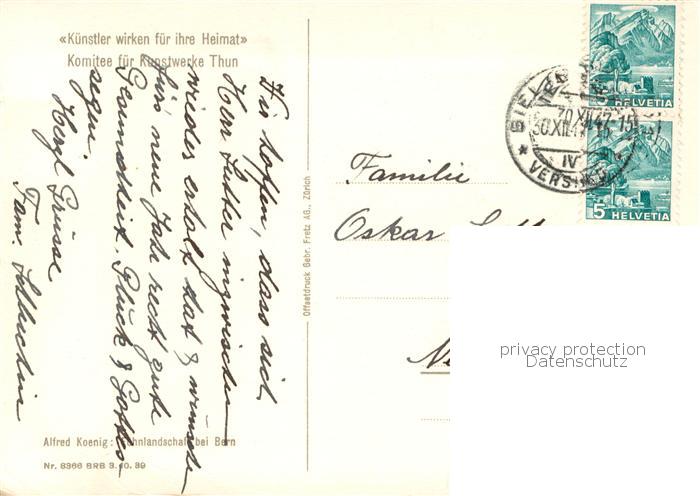 «Künstler wirken für ihre Heimat»
Komitee für Kunstwerke Thun
Wir hoffen, dass sich
Herr Sutter inzwischen
wieder erholt hat & wünsche
fürs neue Jahr recht gute
Gesundheit, Glück & Gottes-
segen.
Herzl Grüsse
Fam.
Alfred Koenig: bei Bern
Nr. 8366 BRB 3. 10. 39
Offsetdruck Gebr. Fretz AG., Zürich
Familie
Oskar
BIEL
30.XII.47-15
IV
VERSAND
5 HELVETIA
5 HELVETIA
privacy protection
Datenschutz